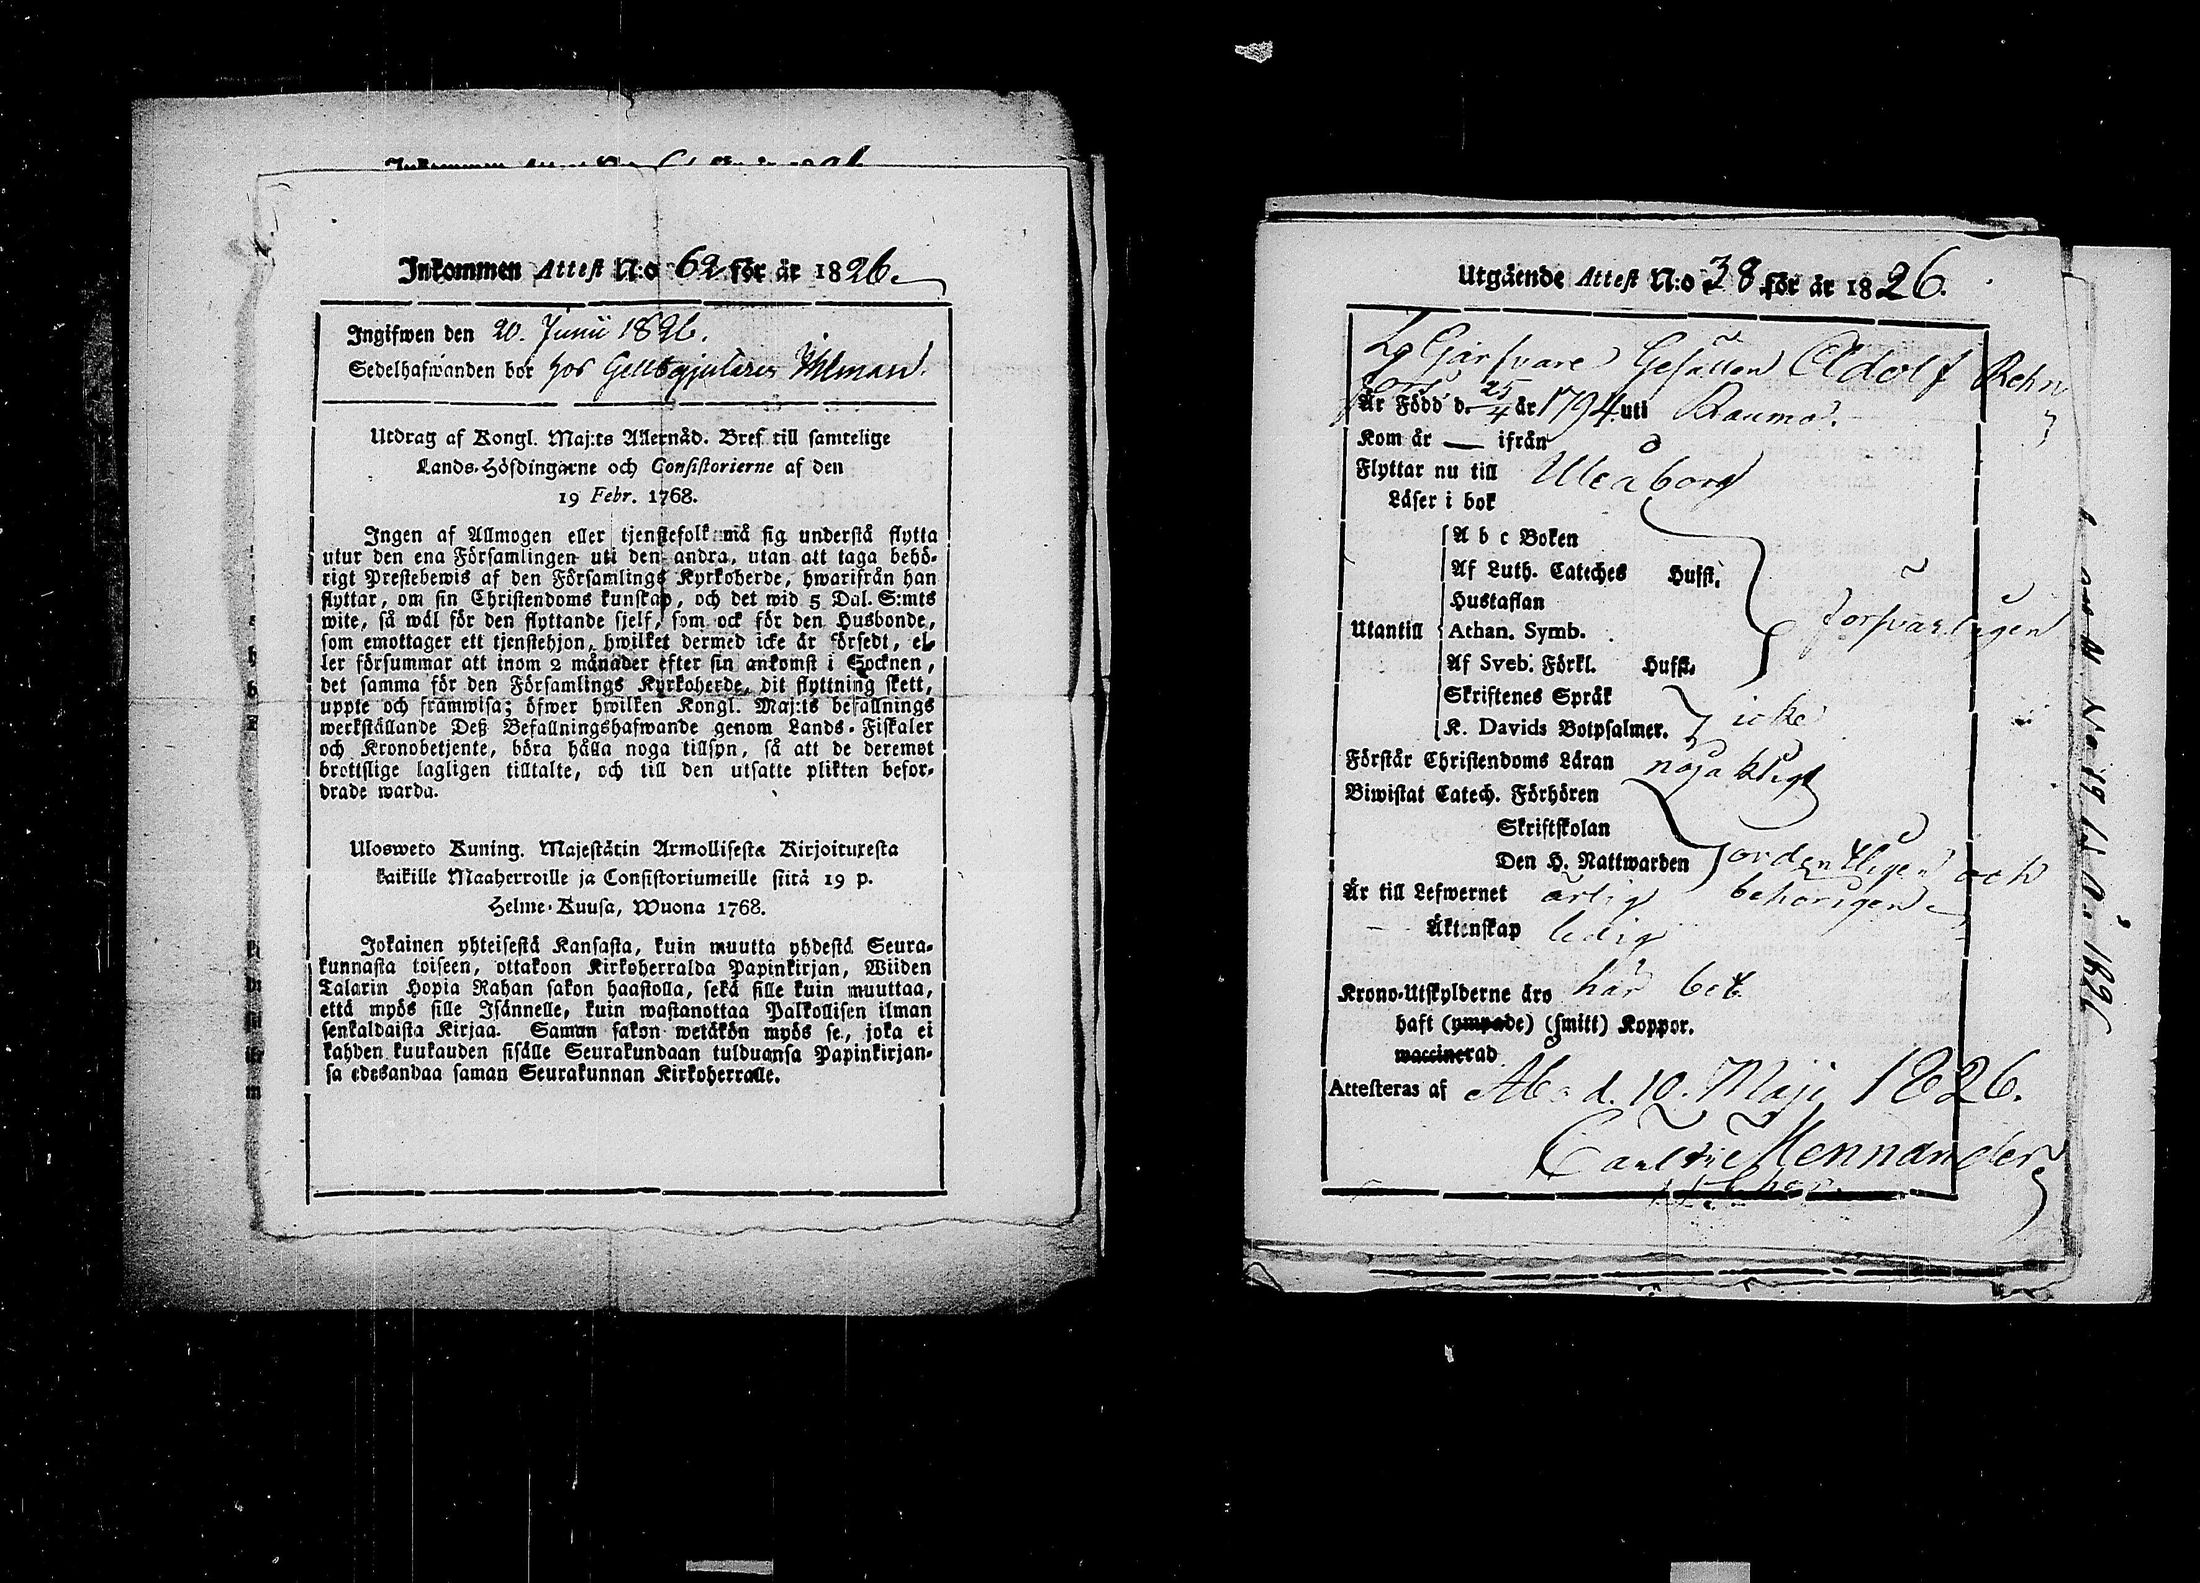 Inkommen Attest N:o 62 för år 1826.
Ingifwen den 20. Junii 1826.
Sedelhafwanden bor hos Gelbgjutaren Uhlman.
Utdrag af Kongl. Maj:ts Allernåd. Bref till samtelige
Lands-Höfdingarne och Consistorierne af den
19 Febr. 1768.
Ingen af Allmogen eller tjenstefolk må sig understå flytta
utur den ena Församlingen uti den andra, utan att taga behö-
rigt Prestebewis af den Församlings Kyrkoherde, hwarifrån han
flyttar, om sin Christendoms kunskap, och det wid 5 Dal. S:mts
wite, så wäl för den flyttande sjelf, som ock för den Husbonde,
som emottager ett tjenstehjon, hwilket dermed icke är försedt, el-
ler försummar att inom 2 månader efter sin ankomst i Socknen,
det samma för den Församlings Kyrkoherde, dit flyttning skett,
uppte och framwisa; öfwer hwilken Kongl. Maj:ts befallnings
werkställande Deß Befallningshafwande genom Lands-Fiskaler
och Kronobetjente, böra hålla noga tillsyn, så att de deremot
brottslige lagligen tilltalte, och till den utsatte plikten befor-
drade warda.
Ulosweto Kuning. Majestätin Armollisesta Kirjoituxesta
kaikille Maaherroille ja Consistoriumeille siitä 19 p.
Helme-Kuusa, Wuona 1768.
Jokainen yhteisestä Kansasta, kuin muutta yhdestä Seura-
kunnasta toiseen, ottakoon Kirkoherralda Papinkirjan, Wiiden
Talarin Hopia Rahan sakon haastolla, sekä sille kuin muuttaa,
että myös sille Isännelle, kuin wastanottaa Palkollisen ilman
senkaldaista Kirjaa. Saman sakon wetäkön myös se, joka ei
kahden kuukauden sisälle Seurakundaan tulduansa Papinkirjan-
sa edesandaa saman Seurakunnan Kirkoherralle.
Utgående Attest N:o 38 för år 1826.
Garfvare Gesällen Adolf Rehn
fors
Är Född d. 25/4 år 1794 uti Raumo.
Kom år — ifrån
Flyttar nu till Uleåborg
Läser i bok
A b c Boken
Af Luth. Cateches Hufst.
Hustaflan
Utantill Athan. Symb. försvarligen
Af Sveb. Förkl. Hufst.
Skriftenes Språk
K. Davids Botpsalmer. icke
Förstår Christendoms Läran nöjaktligt
Biwistat Catech. Förhören
Skriftskolan
Den H. Nattwarden ordentligen och
Är till Lefwernet ärlig behörigen
— Äktenskap ledig
Krono-Utskylderne äro här bet.
haft (ympade) (smitt) Koppor.
waccinerad
Attesteras af Åbo d. 10. Maji 1826.
Mennander